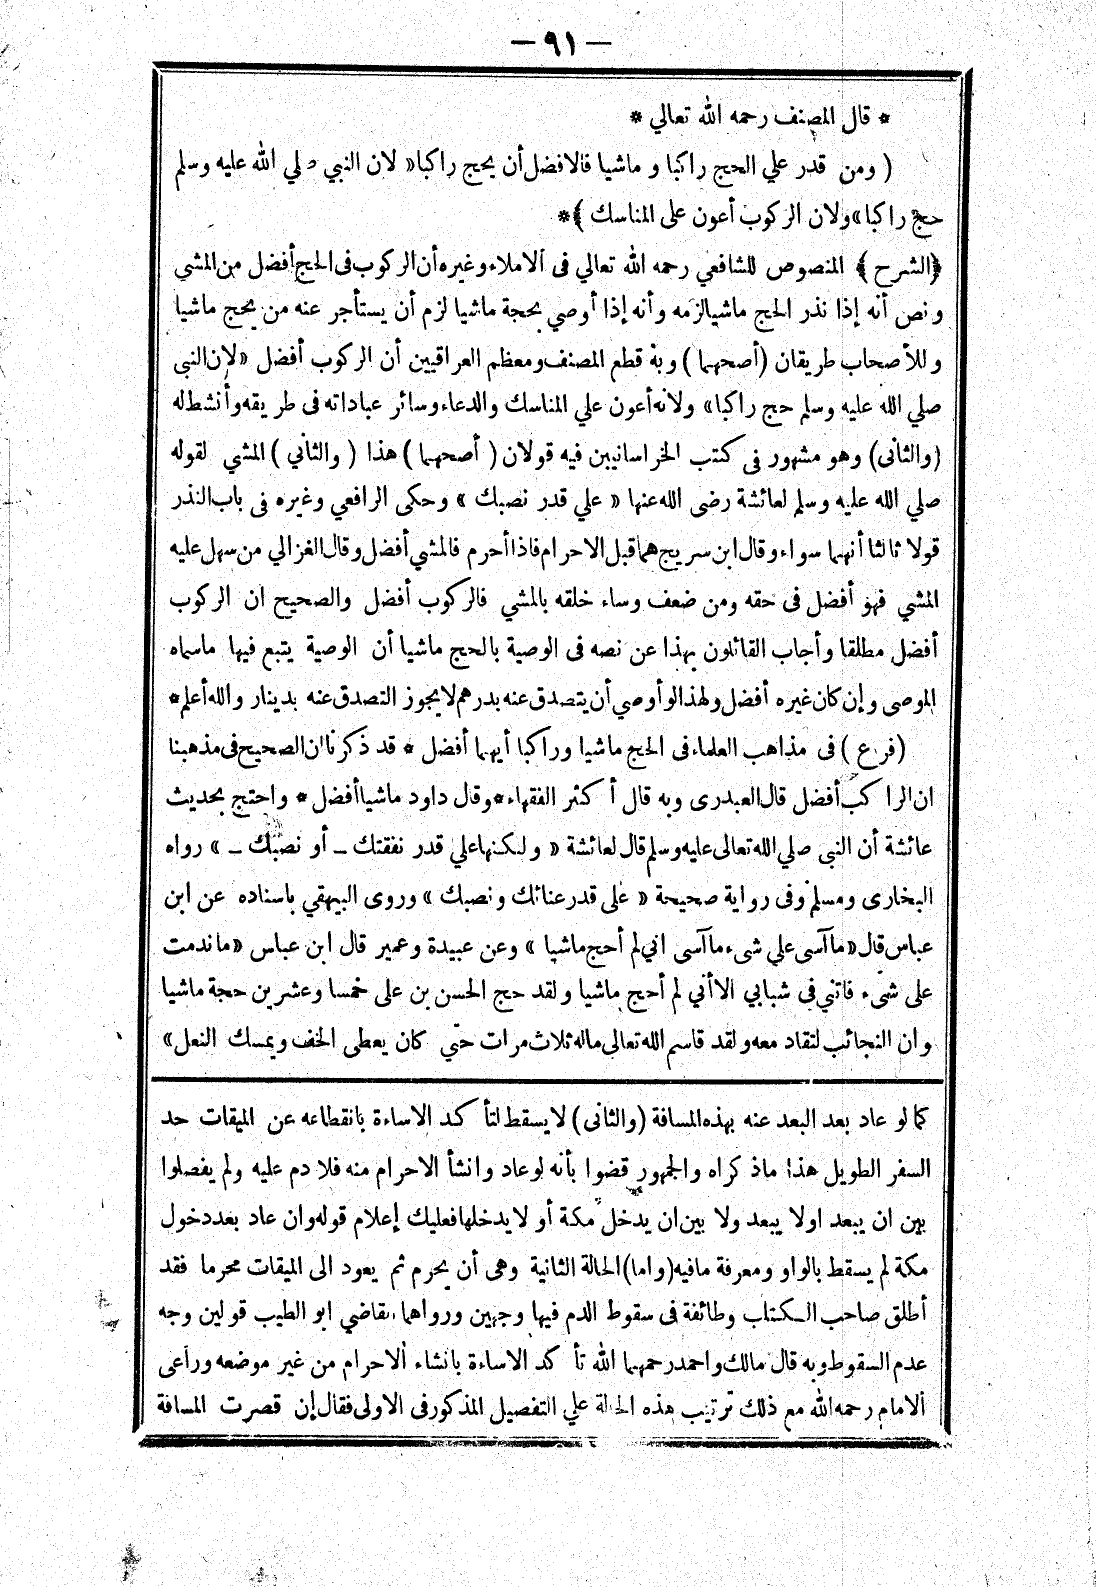 — ٩١ —
* قال المصنف رحمه الله تعالي *
( ومن قدر علي الحج راكبا و ماشيا فالافضل أن يحج راكبا « لان النبي صلي الله عليه وسلم
حج راكبا » ولان الركوب أعون على المناسك ﴾ *
﴿ الشرح ﴾ المنصوص للشافعي رحمه الله تعالي فى الاملاء وغيره أن الركوب فى الحج أفضل من المشي
ونص أنه إذا نذر الحج ماشيا لزمه وأنه إذا أوصي بحجة ماشيا لزم أن يستأجر عنه من يحج ماشيا
وللأصحاب طريقان ( أصحهما ) وبه قطع المصنف ومعظم العراقيين أن الركوب أفضل « لان النبى
صلي الله عليه وسلم حج راكبا » ولانه أعون علي المناسك والدعاء وسائر عباداته فى طريقه وأنشط له
( والثانى ) وهو مشهور فى كتب الخراسانيين فيه قولان ( أصحهما ) هذا ( والثاني ) المشي لقوله
صلي الله عليه وسلم لعائشة رضى الله عنها « علي قدر نصبك » وحكى الرافعي وغيره فى باب النذر
قولا ثالثا أنهما سواء وقال ابن سريج هما قبل الاحرام فاذا أحرم فالمشي أفضل وقال الغزالي من سهل عليه
المشي فهو أفضل فى حقه ومن ضعف وساء خلقه بالمشي فالركوب أفضل والصحيح ان الركوب
أفضل مطلقا وأجاب القائلون بهذا عن نصه فى الوصية بالحج ماشيا أن الوصية يتبع فيها ما سماه
الموصى وإن كان غيره أفضل ولهذا لو أوصي أن يتصدق عنه بدرهم لا يجوز التصدق عنه بدينار والله أعلم *
( فرع ) فى مذاهب العلماء فى الحج ماشيا وراكبا أيهما أفضل * قد ذكرنا ان الصحيح فى مذهبنا
ان الراكب أفضل قال العبدرى وبه قال أكثر الفقهاء * وقال داود ماشيا أفضل * واحتج بحديث
عائشة أن النبى صلي الله تعالى عليه وسلم قال لعائشة « ولكنها علي قدر نفقتك – أو نصبك – » رواه
البخارى ومسلم وفى رواية صحيحة « على قدر عنائك ونصبك » وروى البيهقي باسناده عن ابن
عباس قال « ما آسى علي شىء ما آسى اني لم أحج ماشيا » وعن عبيدة وعمير قال ابن عباس « ما ندمت
على شىء فاتني فى شبابي الا أني لم أحج ماشيا ولقد حج الحسن بن على خمسا وعشرين حجة ماشيا
وان النجائب لتقاد معه ولقد قاسم الله تعالى ماله ثلاث مرات حتي كان يعطى الخف ويمسك النعل »
كما لو عاد بعد البعد عنه بهذه المسافة ( والثانى ) لا يسقط لتأكد الاساءة بانقطاعه عن الميقات حد
السفر الطويل هذا ما ذكراه والجمهور قضوا بأنه لو عاد وانشأ الاحرام منه فلا دم عليه ولم يفصلوا
بين ان يبعد اولا يبعد ولا بين ان يدخل مكة أو لا يدخلها فعليك إعلام قوله وان عاد بعد دخول
مكة لم يسقط بالواو ومعرفة ما فيه ( واما ) الحالة الثانية وهى أن يحرم ثم يعود الى الميقات محرما فقد
أطلق صاحب الكتاب وطائفة فى سقوط الدم فيها وجهين ورواهما القاضي ابو الطيب قولين وجه
عدم السقوط وبه قال مالك واحمد رحمهما الله تأكد الاساءة بانشاء الاحرام من غير موضعه وراعى
الامام رحمه الله مع ذلك ترتيب هذه الحالة علي التفصيل المذكور فى الاولى فقال إن قصرت المسافة